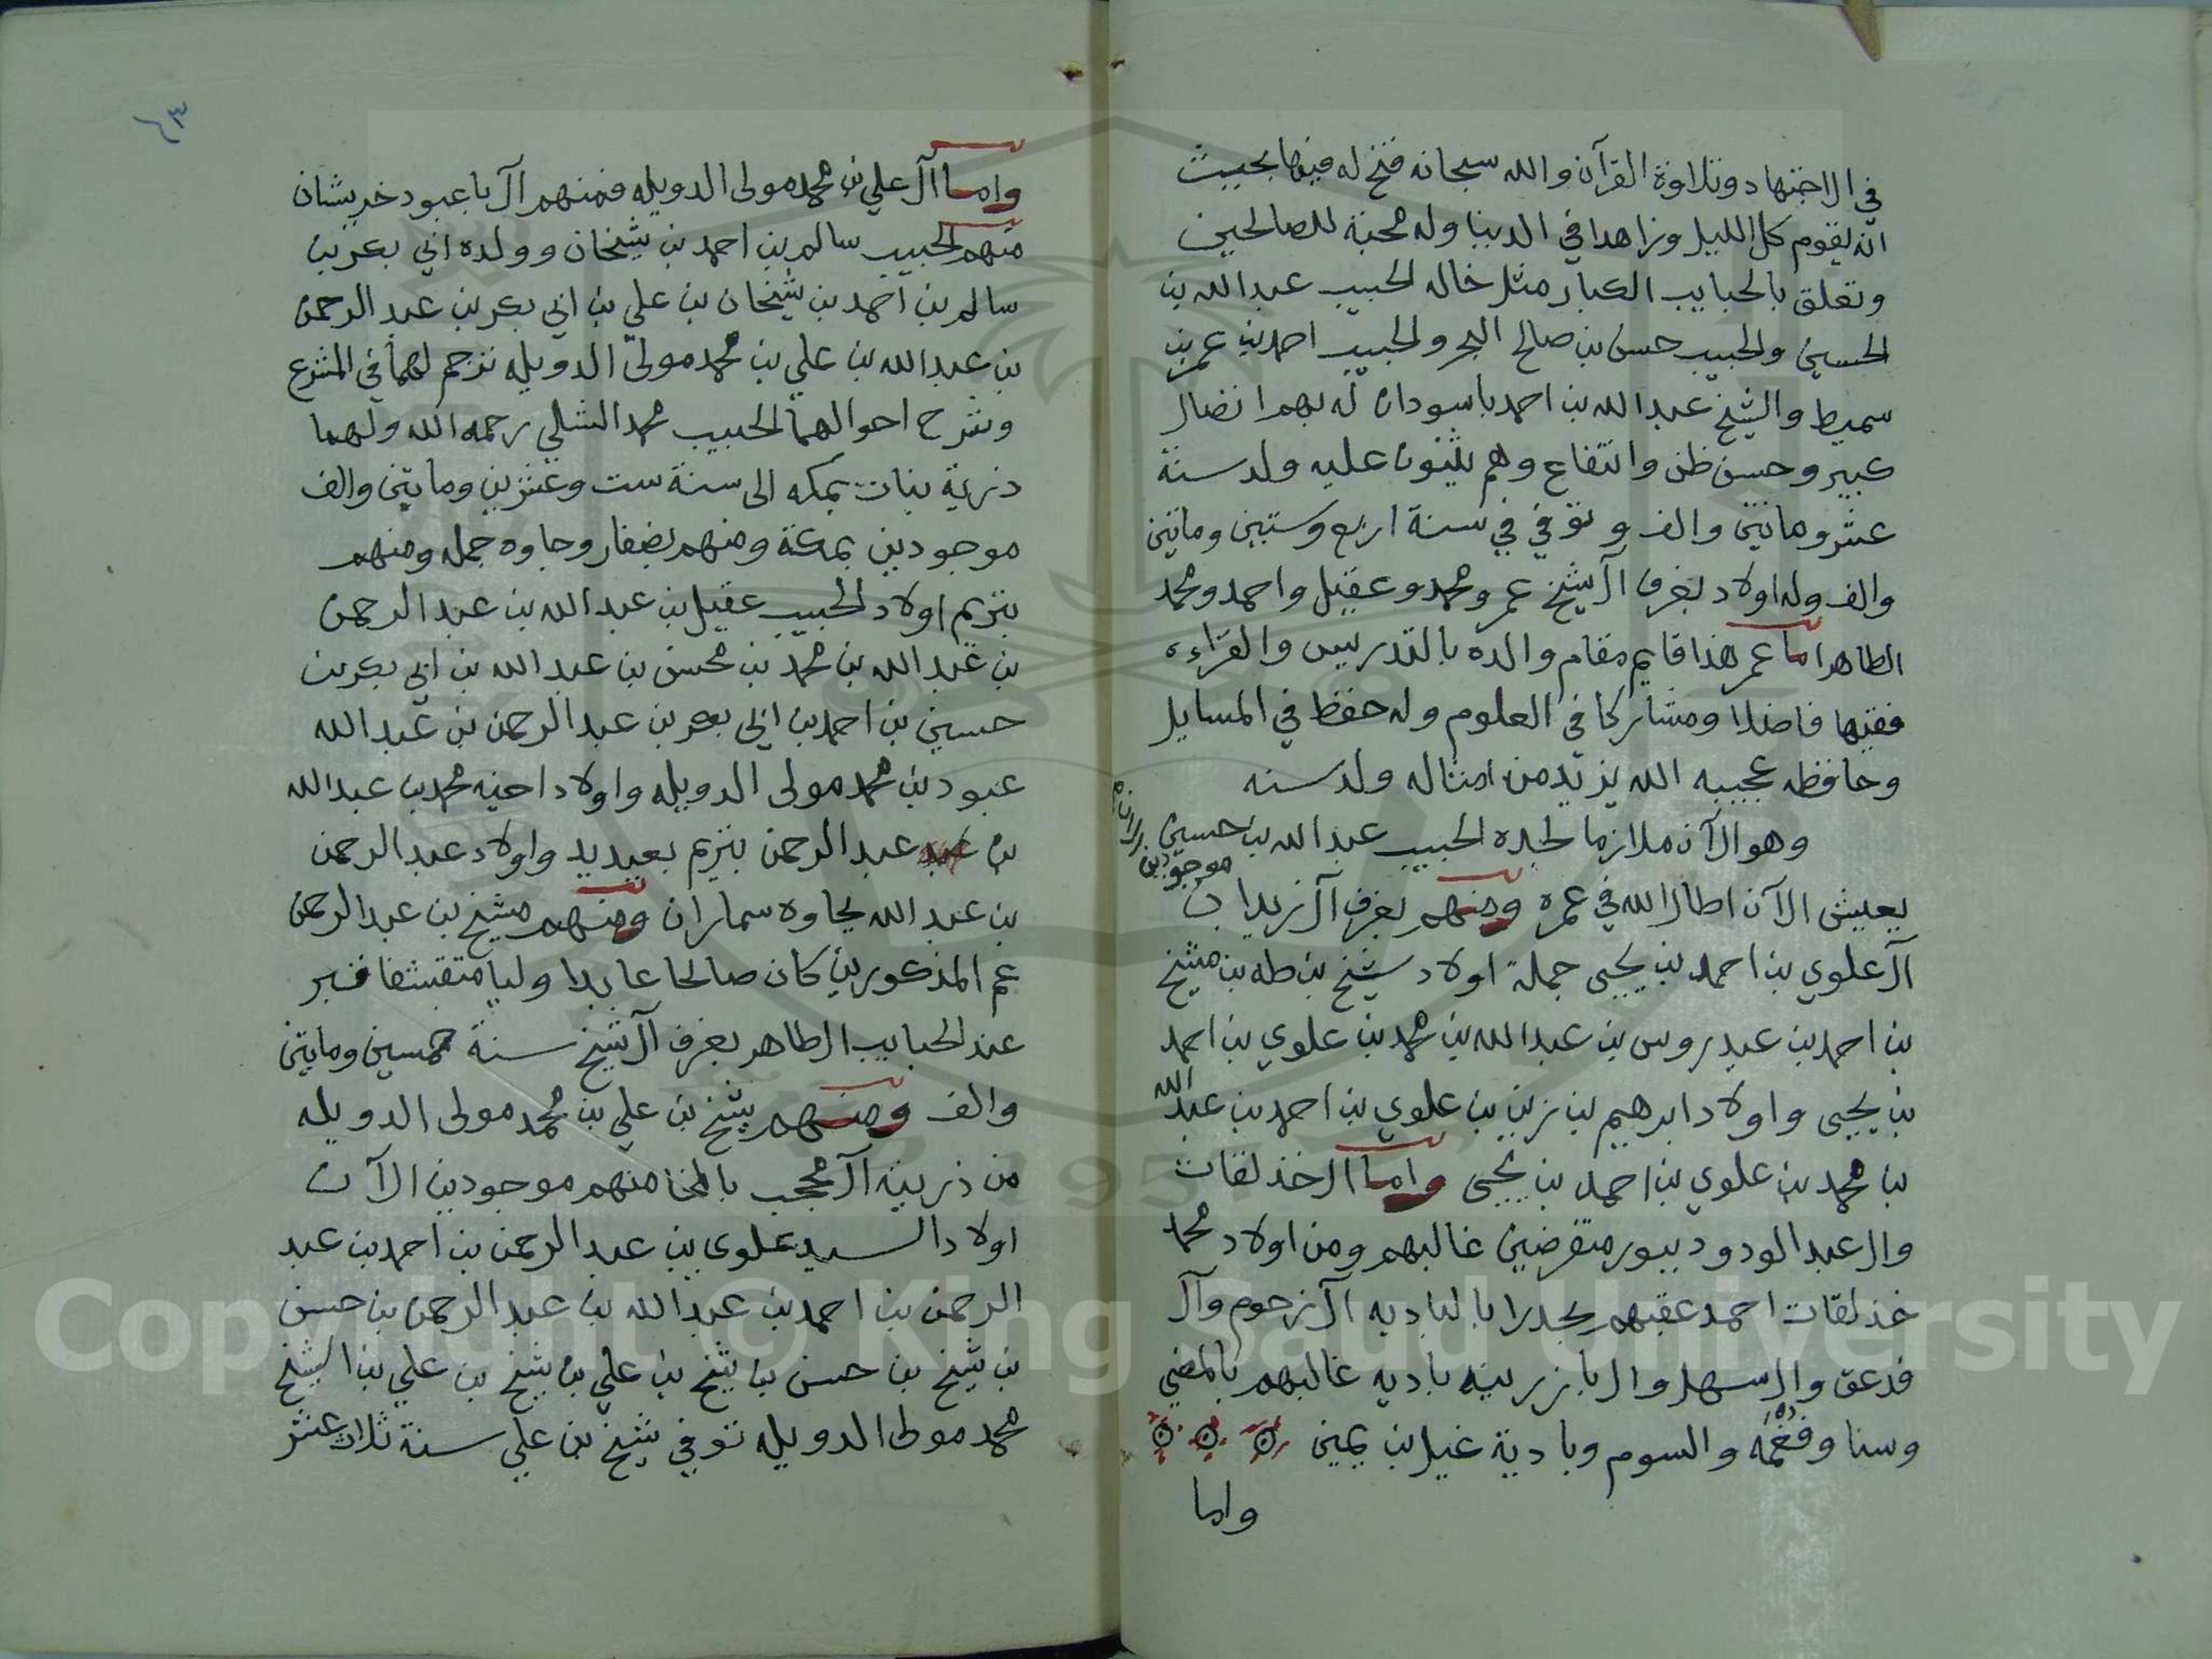 في الاجتهاد وتلاوة القرآن والله سبحانه فتح له فيها بحيث
انه يقوم كل الليل وزاهدا في الدنيا وله محبة للصالحين
وتعلق بالحبايب الكبار مثل خاله الحبيب عبدالله بن
الحسين والحبيب حسن بن صالح البحر والحبيب احمد بن عمر بن
سميط والشيخ عبدالله بن احمد باسودان له بهم اتصال
كبير وحسن ظن وانتفاع وهم يثنون عليه ولد سنة
عشر ومائتين والف وتوفي في سنة اربع وستين ومائتين
والف وله اولاد بغرف آل شيخ عمر ومحمد وعقيل واحمد ومحمد
الطاهر اما عمر هذا قايم مقام والده بالتدريس والقراءه
فقيها فاضلا ومشاركا في العلوم وله حفظ في المسايل
وحافظه عجيبه الله يزيد من امثاله ولد سنه
وهو الآن ملازما لجده الحبيب عبدالله بن حسين
موجودين
يعيش الآن اطال الله في عمره ومنهم بغرف آل زيدان
آل علوي بن احمد بن يحيى جملة اولاد شيخ بن طه بن شيخ
بن احمد بن عيدروس بن عبدالله بن محمد بن علوي بن احمد
بن يحيى واولاد ابرهيم بن زين بن علوي بن احمد بن عبدالله
بن محمد بن علوي بن احمد بن يحيى واما ال خذلقات
وال عبدالودود ببور منقرضين غالبهم ومن اولاد محمد
خذلقات احمد عقبهم بجدرا بالباديه آل زحوم وآل
قدعق وال سهل وال بازرينه باديه غالبهم بالمضي
وسنا وفغمه والسوم وبادية غيل بن يمين
واما
٦٣
واما آل علي بن محمد مولى الدويله فمنهم آل باعبود خربشان
منهم الحبيب سالم بن احمد بن شيخان وولده ابي بكر بن
سالم بن احمد بن شيخان بن علي بن ابي بكر بن عبد الرحمن
بن عبدالله بن علي بن محمد مولى الدويله ترجم لهما في المشرع
وشرح احوالهما الحبيب محمد الشلي رحمه الله ولهما
ذرية بنات بمكه الى سنة ست وعشرين ومايتين والف
موجودين بمكة ومنهم بضفار وجاوه جمله ومنهم
بتريم اولاد الحبيب عقيل بن عبدالله بن عبد الرحمن
بن عبدالله بن محمد بن محسن بن عبدالله بن ابي بكر بن
حسين بن احمد بن ابي بكر بن عبد الرحمن بن عبدالله
عبود بن محمد مولى الدويله واولاد اخيه محمد بن عبدالله
بن عبد الرحمن بتريم بعيديد واولاد عبد الرحمن
بن عبدالله بجاوه سماران ومنهم شيخ بن عبد الرحمن
عم المذكورين كان صالحا عابدا وليا متقشفا قبر
عند الحبايب الطاهر بغرف آل شيخ سنة خمسين ومايتين
والف ومنهم شيخ بن علي بن محمد مولى الدويله
من ذريته آل محجب بالمخا منهم موجودين الآن
اولاد السيد علوي بن عبد الرحمن بن احمد بن عبد
الرحمن بن احمد بن عبدالله بن عبد الرحمن بن حسن
بن شيخ بن حسن بن شيخ بن علي بن شيخ بن علي بن الشيخ
محمد مولى الدويله توفي شيخ بن علي سنة ثلاث عشر
Copyright © King Saud University
1957